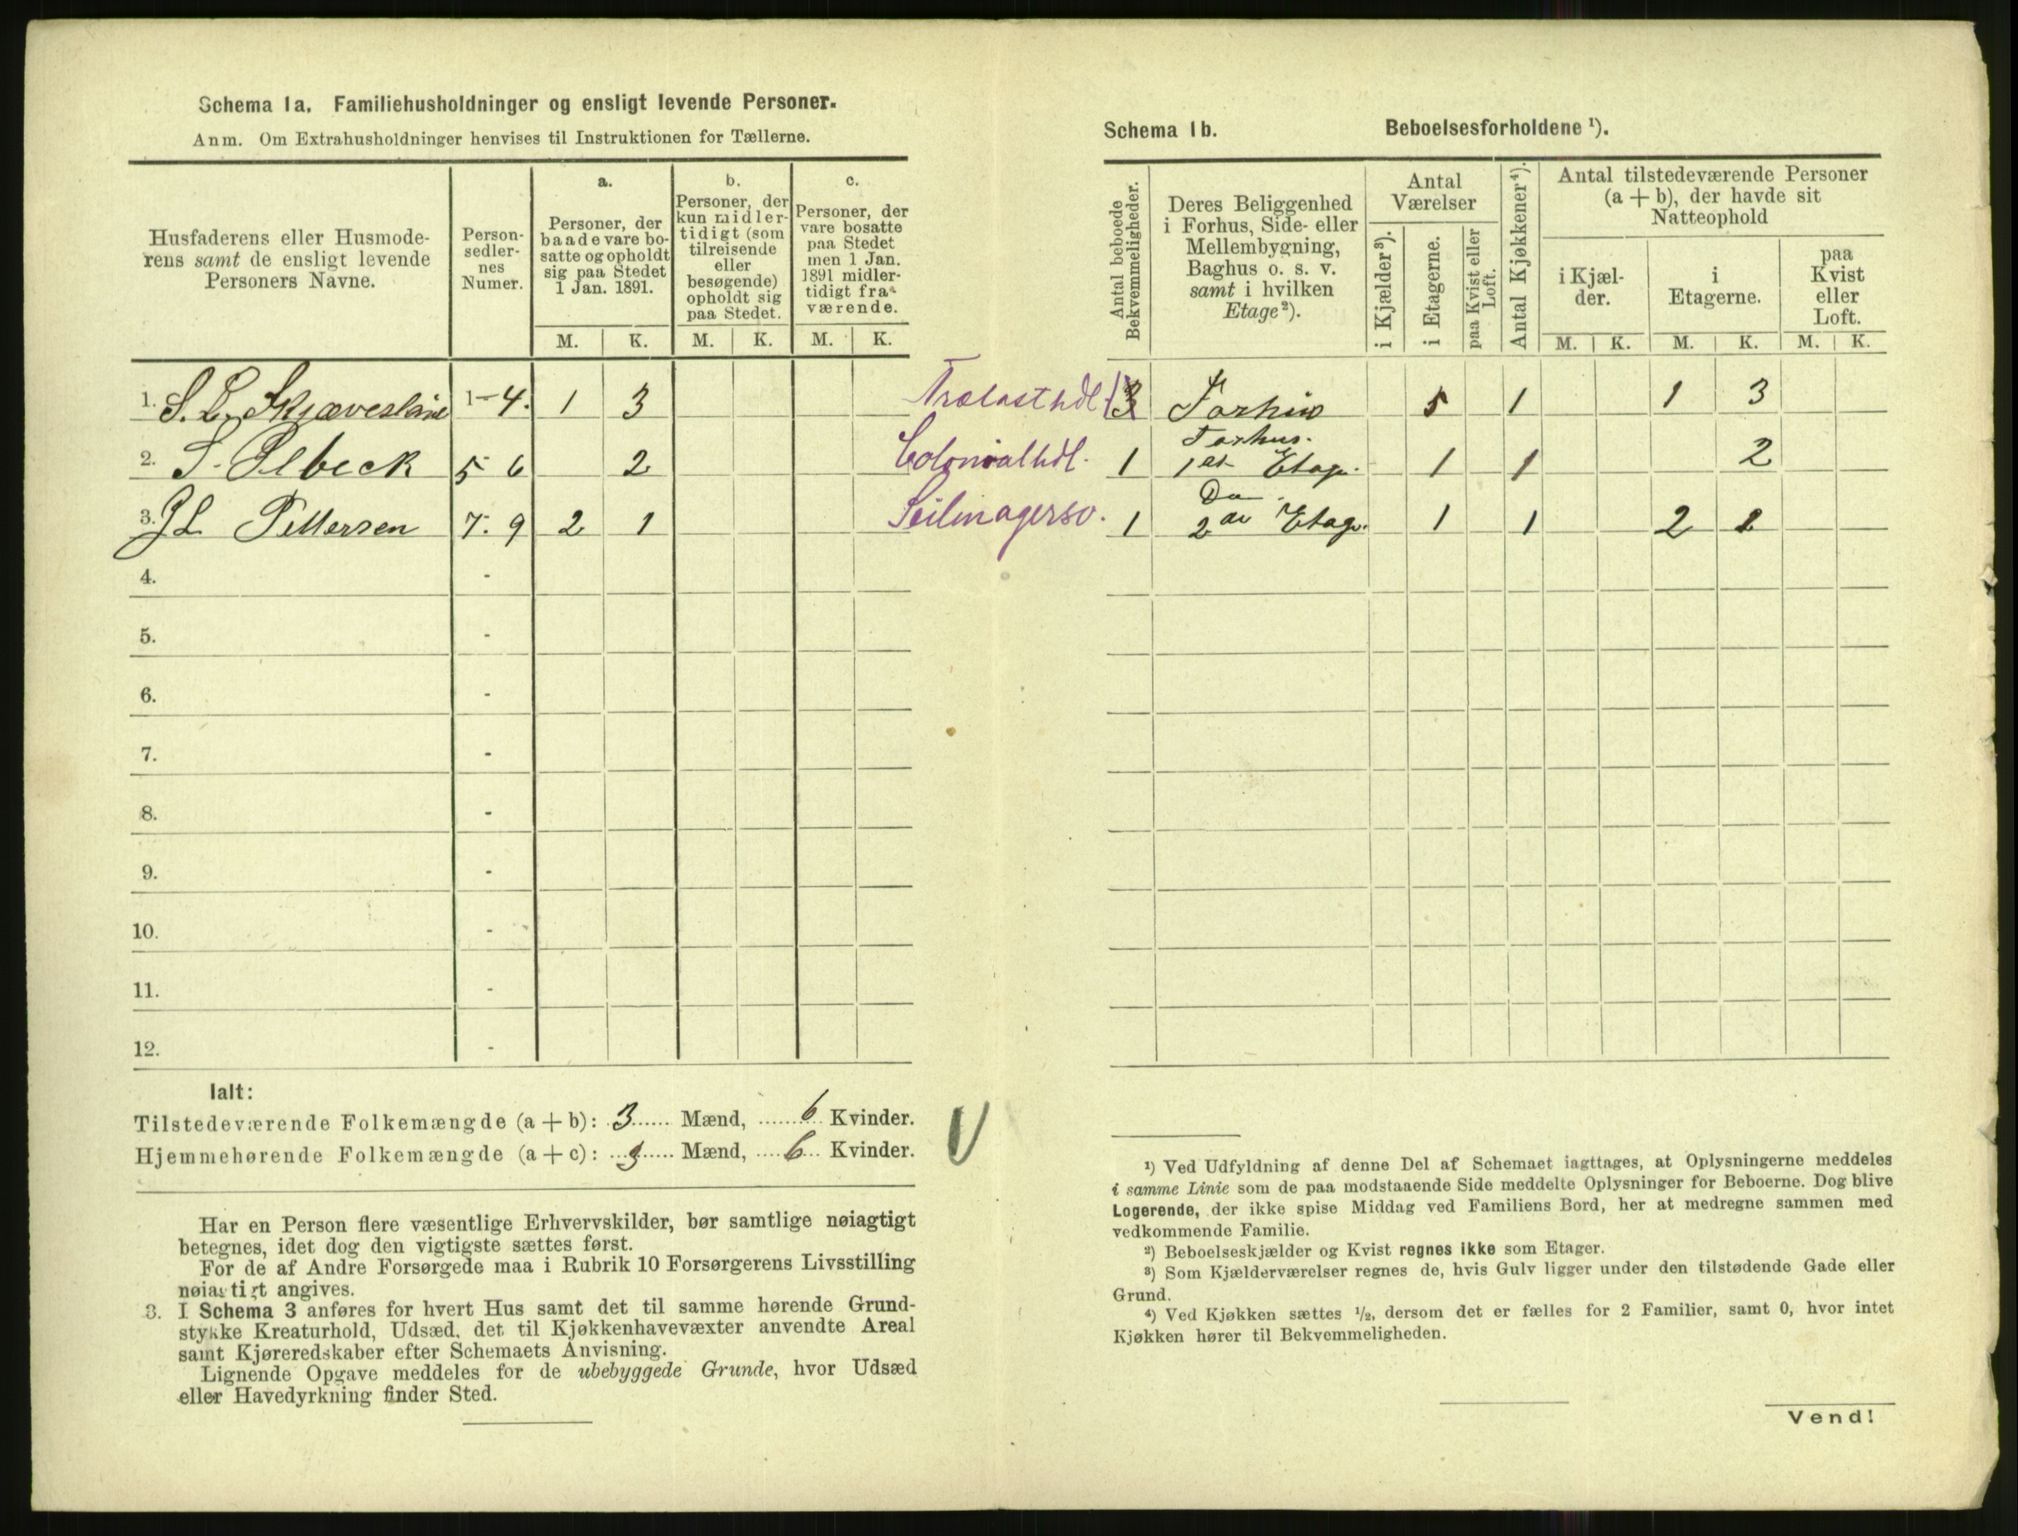 Schema 1a. Familiehusholdninger og ensligt levende Personer.
Anm. Om Extrahusholdninger henvises til Instruktionen for Tællerne.
Husfaderens eller Husmode-
rens samt de ensligt levende
Personers Navne.
Person-
sedler-
nes
Numer.
a.
Personer, der
baade vare bo-
satte og opholdt
sig paa Stedet
1 Jan. 1891.
b.
Personer, der
kun midler-
tidigt (som
tilreisende
eller
besøgende)
opholdt sig
paa Stedet.
c.
Personer, der
vare bosatte
paa Stedet
men 1 Jan.
1891 midler-
tidigt fra-
værende.
M. K. M. K. M. K.
1. S. L. 1-4. 1 3 Trælasthdl.
2. S. Olbeck 5 6 2 Colonialhdl.
3. J L Pettersen 7-9 2 1 Seilmagersv.
4. -
5. -
6. -
7. -
8. -
9. -
10. -
11. -
12. -
Ialt:
Tilstedeværende Folkemængde (a + b): 3 Mænd, 6 Kvinder.
Hjemmehørende Folkemængde (a + c): 3 Mænd, 6 Kvinder.
Har en Person flere væsentlige Erhvervskilder, bør samtlige nøiagtigt
betegnes, idet dog den vigtigste sættes først.
For de af Andre Forsørgede maa i Rubrik 10 Forsørgerens Livsstilling
nøiagtigt angives.
3. I Schema 3 anføres for hvert Hus samt det til samme hørende Grund-
stykke Kreaturhold, Udsæd, det til Kjøkkenhavevæxter anvendte Areal
samt Kjøreredskaber efter Schemaets Anvisning.
Lignende Opgave meddeles for de ubebyggede Grunde, hvor Udsæd
eller Havedyrkning finder Sted.
Schema 1b. Beboelsesforholdene ¹).
Antal beboede
Bekvemmeligheder.
Deres Beliggenhed
i Forhus, Side- eller
Mellembygning,
Baghus o. s. v.
samt i hvilken
Etage²).
Antal
Værelser
i Kjælder³).
i Etagerne.
paa Kvist eller
Loft.
Antal Kjøkkener⁴).
Antal tilstedeværende Personer
(a + b), der havde sit
Natteophold
i Kjæl-
der.
i
Etagerne.
paa
Kvist
eller
Loft.
M. K. M. K. M. K.
3 Forhus 5 1 1 3
Forhus.
1 1st Etage. 1 1 2
Do.
1 2den Etage. 1 1 2 1
¹) Ved Udfyldning af denne Del af Schemaet iagttages, at Oplysningerne meddeles
i samme Linie som de paa modstaaende Side meddelte Oplysninger for Beboerne. Dog blive
Logerende, der ikke spise Middag ved Familiens Bord, her at medregne sammen med
vedkommende Familie.
²) Beboelseskjælder og Kvist regnes ikke som Etager.
³) Som Kjælderværelser regnes de, hvis Gulv ligger under den tilstødende Gade eller
Grund.
⁴) Ved Kjøkken sættes ½, dersom det er fælles for 2 Familier, samt 0, hvor intet
Kjøkken hører til Bekvemmeligheden.
Vend!